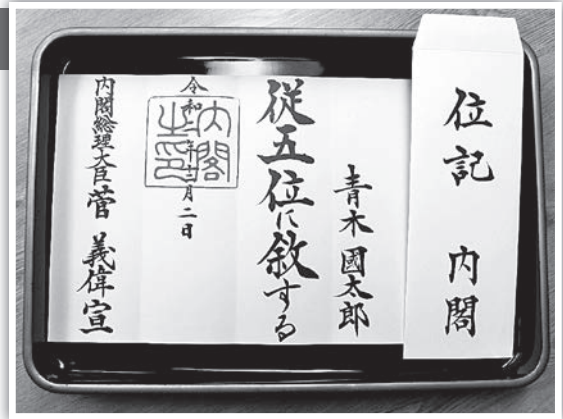 位記 内閣
青木國太郎
従五位に叙する
令和 年 月二日
内閣之印
内閣総理大臣菅 義偉宣